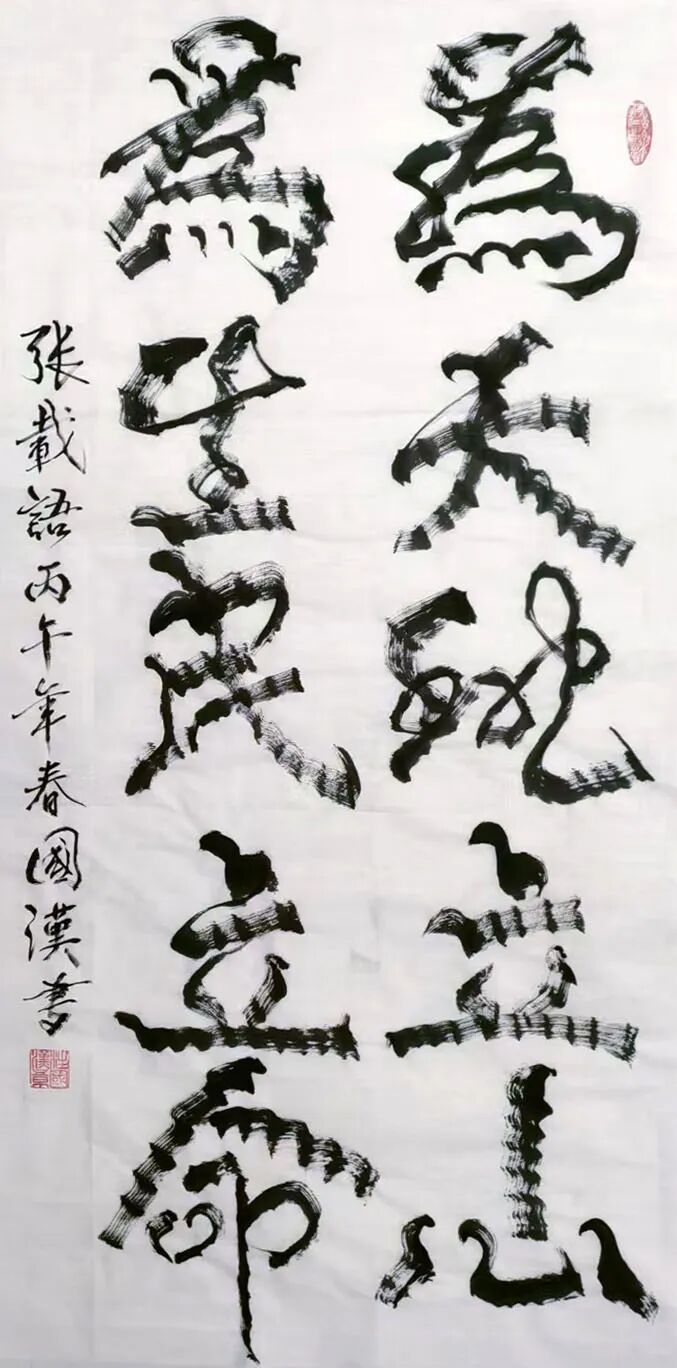 為天地立心
為生民立命
张載語丙午年春國漢書